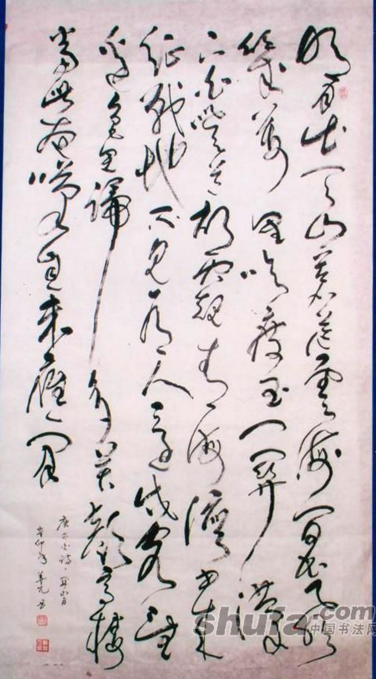 明月出天山苍茫云海间长风
几万里吹度玉门关汉
下白登道胡窥青海湾由来
征战地不见有人还戍客望
边色思归多苦颜高楼
当此夜叹息未应闲
唐李白诗关山月
辛卯年
shufa.com
中国书法网